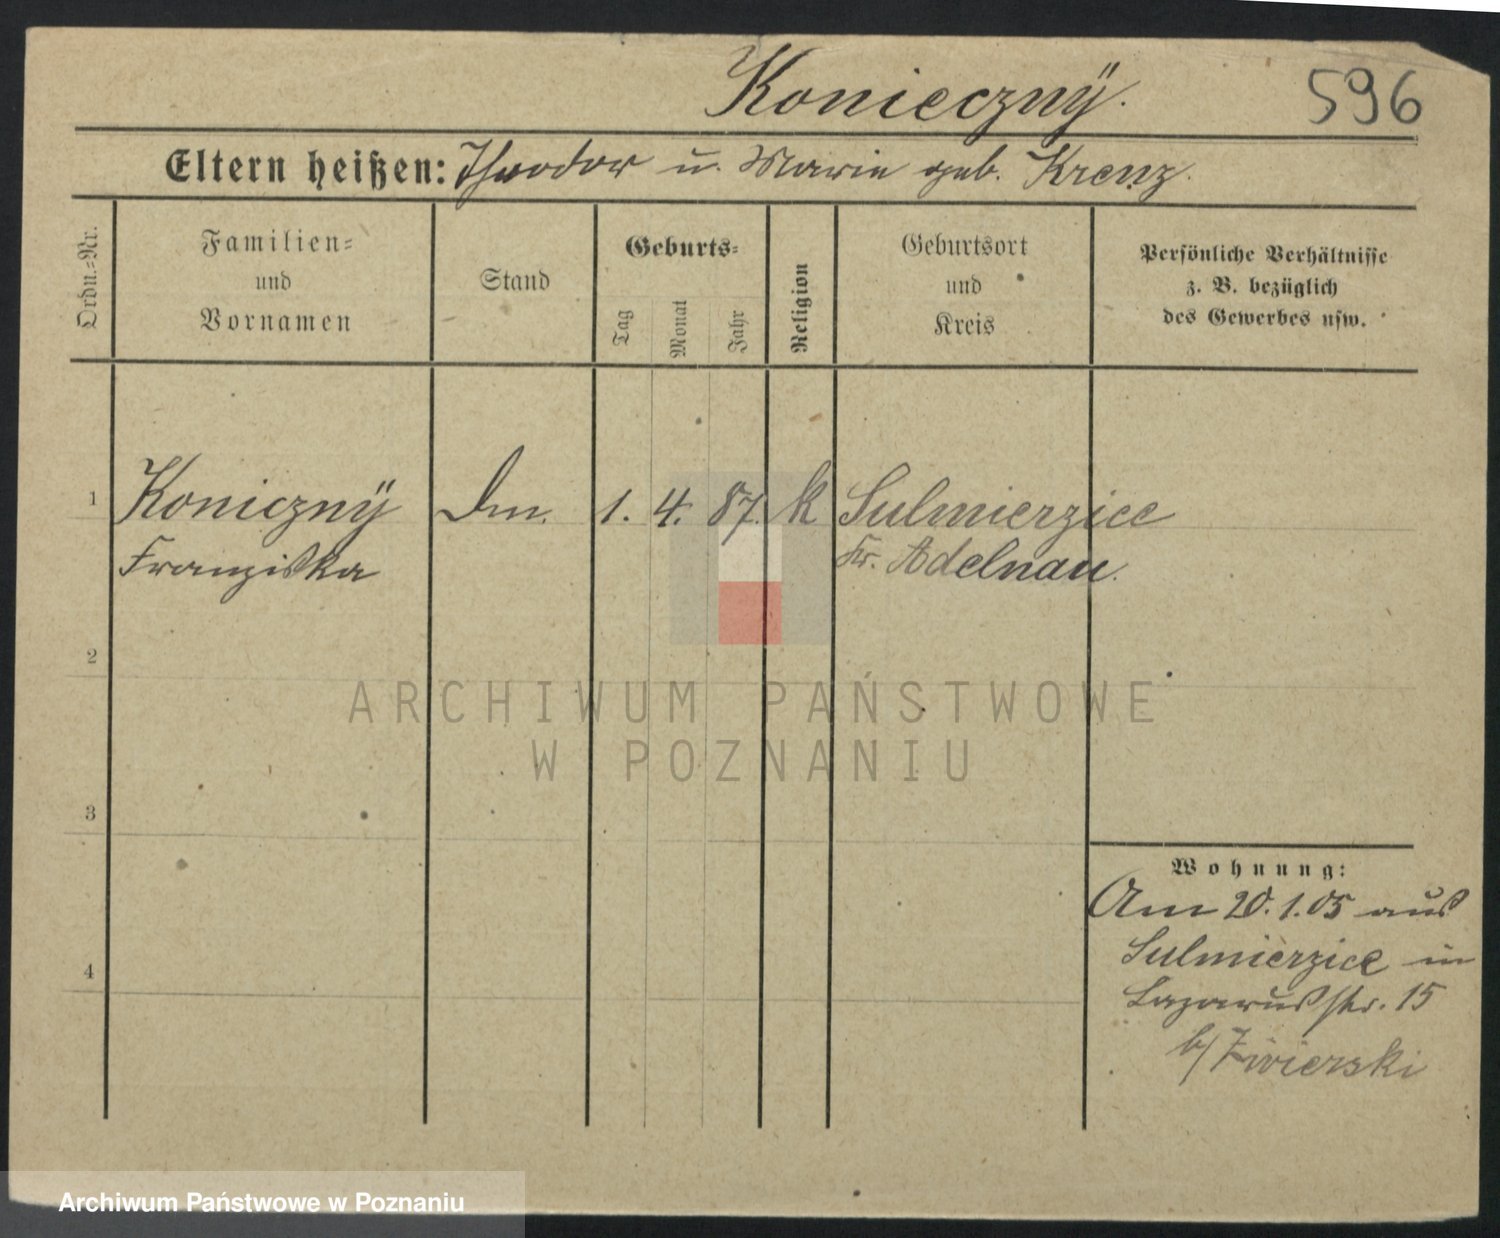 Konieczny.
596
Eltern heißen: Theodor u. Marie geb. Krenz.
Ordn.=Nr.
Familien=
und
Vornamen
Stand
Geburts=
Tag
Monat
Jahr
Religion
Geburtsort
und
Kreis
Persönliche Verhältnisse
z. B. bezüglich
des Gewerbes usw.
1 Koniczny 1. 4. 87. k Sulmierzice
Franziska Kr. Adelnau.
2
3
4
Wohnung:
Am 20.1.05 aus
Sulmierzice in
Lazarusstr. 15
b/
ARCHIWUM PAŃSTWOWE
W POZNANIU
Archiwum Państwowe w Poznaniu